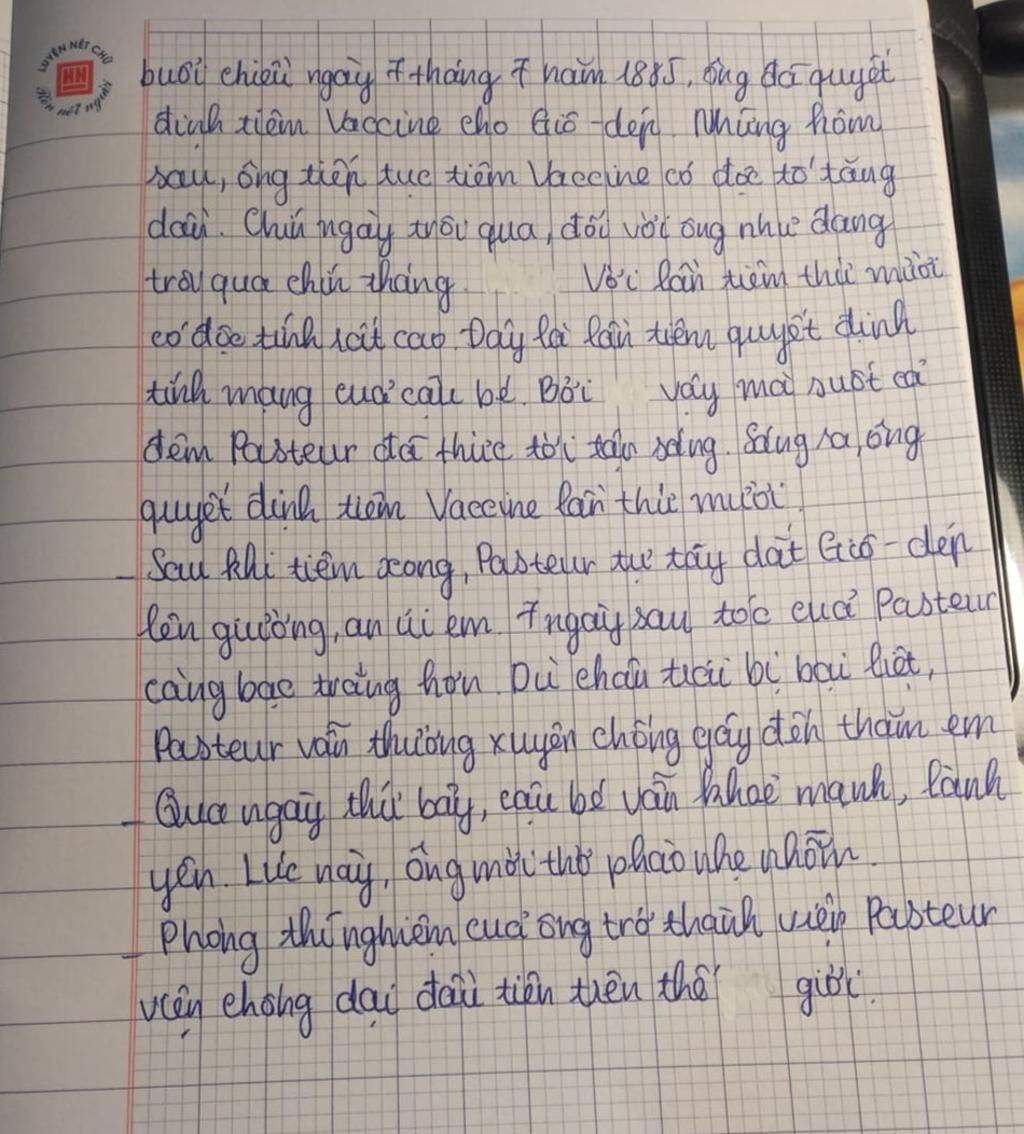 LUYỆN NÉT CHỮ
HH
Rèn nết người
buổi chiều ngày 7 tháng 7 năm 1885, ông đã quyết
định tiêm Vaccine cho Giô-dép. Những hôm
sau, ông tiếp tục tiêm Vaccine có độc tố tăng
dần. Chín ngày trôi qua, đối với ông như đang
trôi qua chín tháng. Với lần tiêm thứ mười
có độc tính rất cao. Đây là lần tiêm quyết định
tính mạng của cậu bé. Bởi vậy mà suốt cả
đêm Pasteur đã thức tới tận sáng. Sáng ra, ông
quyết định tiêm Vaccine lần thứ mười.
- Sau khi tiêm xong, Pasteur tự tay dắt Giô-dép
lên giường, an ủi em. 7 ngày sau tóc của Pasteur
càng bạc trắng hơn. Dù chân trái bị bại liệt,
Pasteur vẫn thường xuyên chống gậy đến thăm em
- Qua ngày thứ bảy, cậu bé vẫn khoẻ mạnh, lành
yên. Lúc này, ông mới thở phào nhẹ nhõm.
- Phòng thí nghiệm của ông trở thành viện Pasteur
viện chống dại đầu tiên trên thế giới.